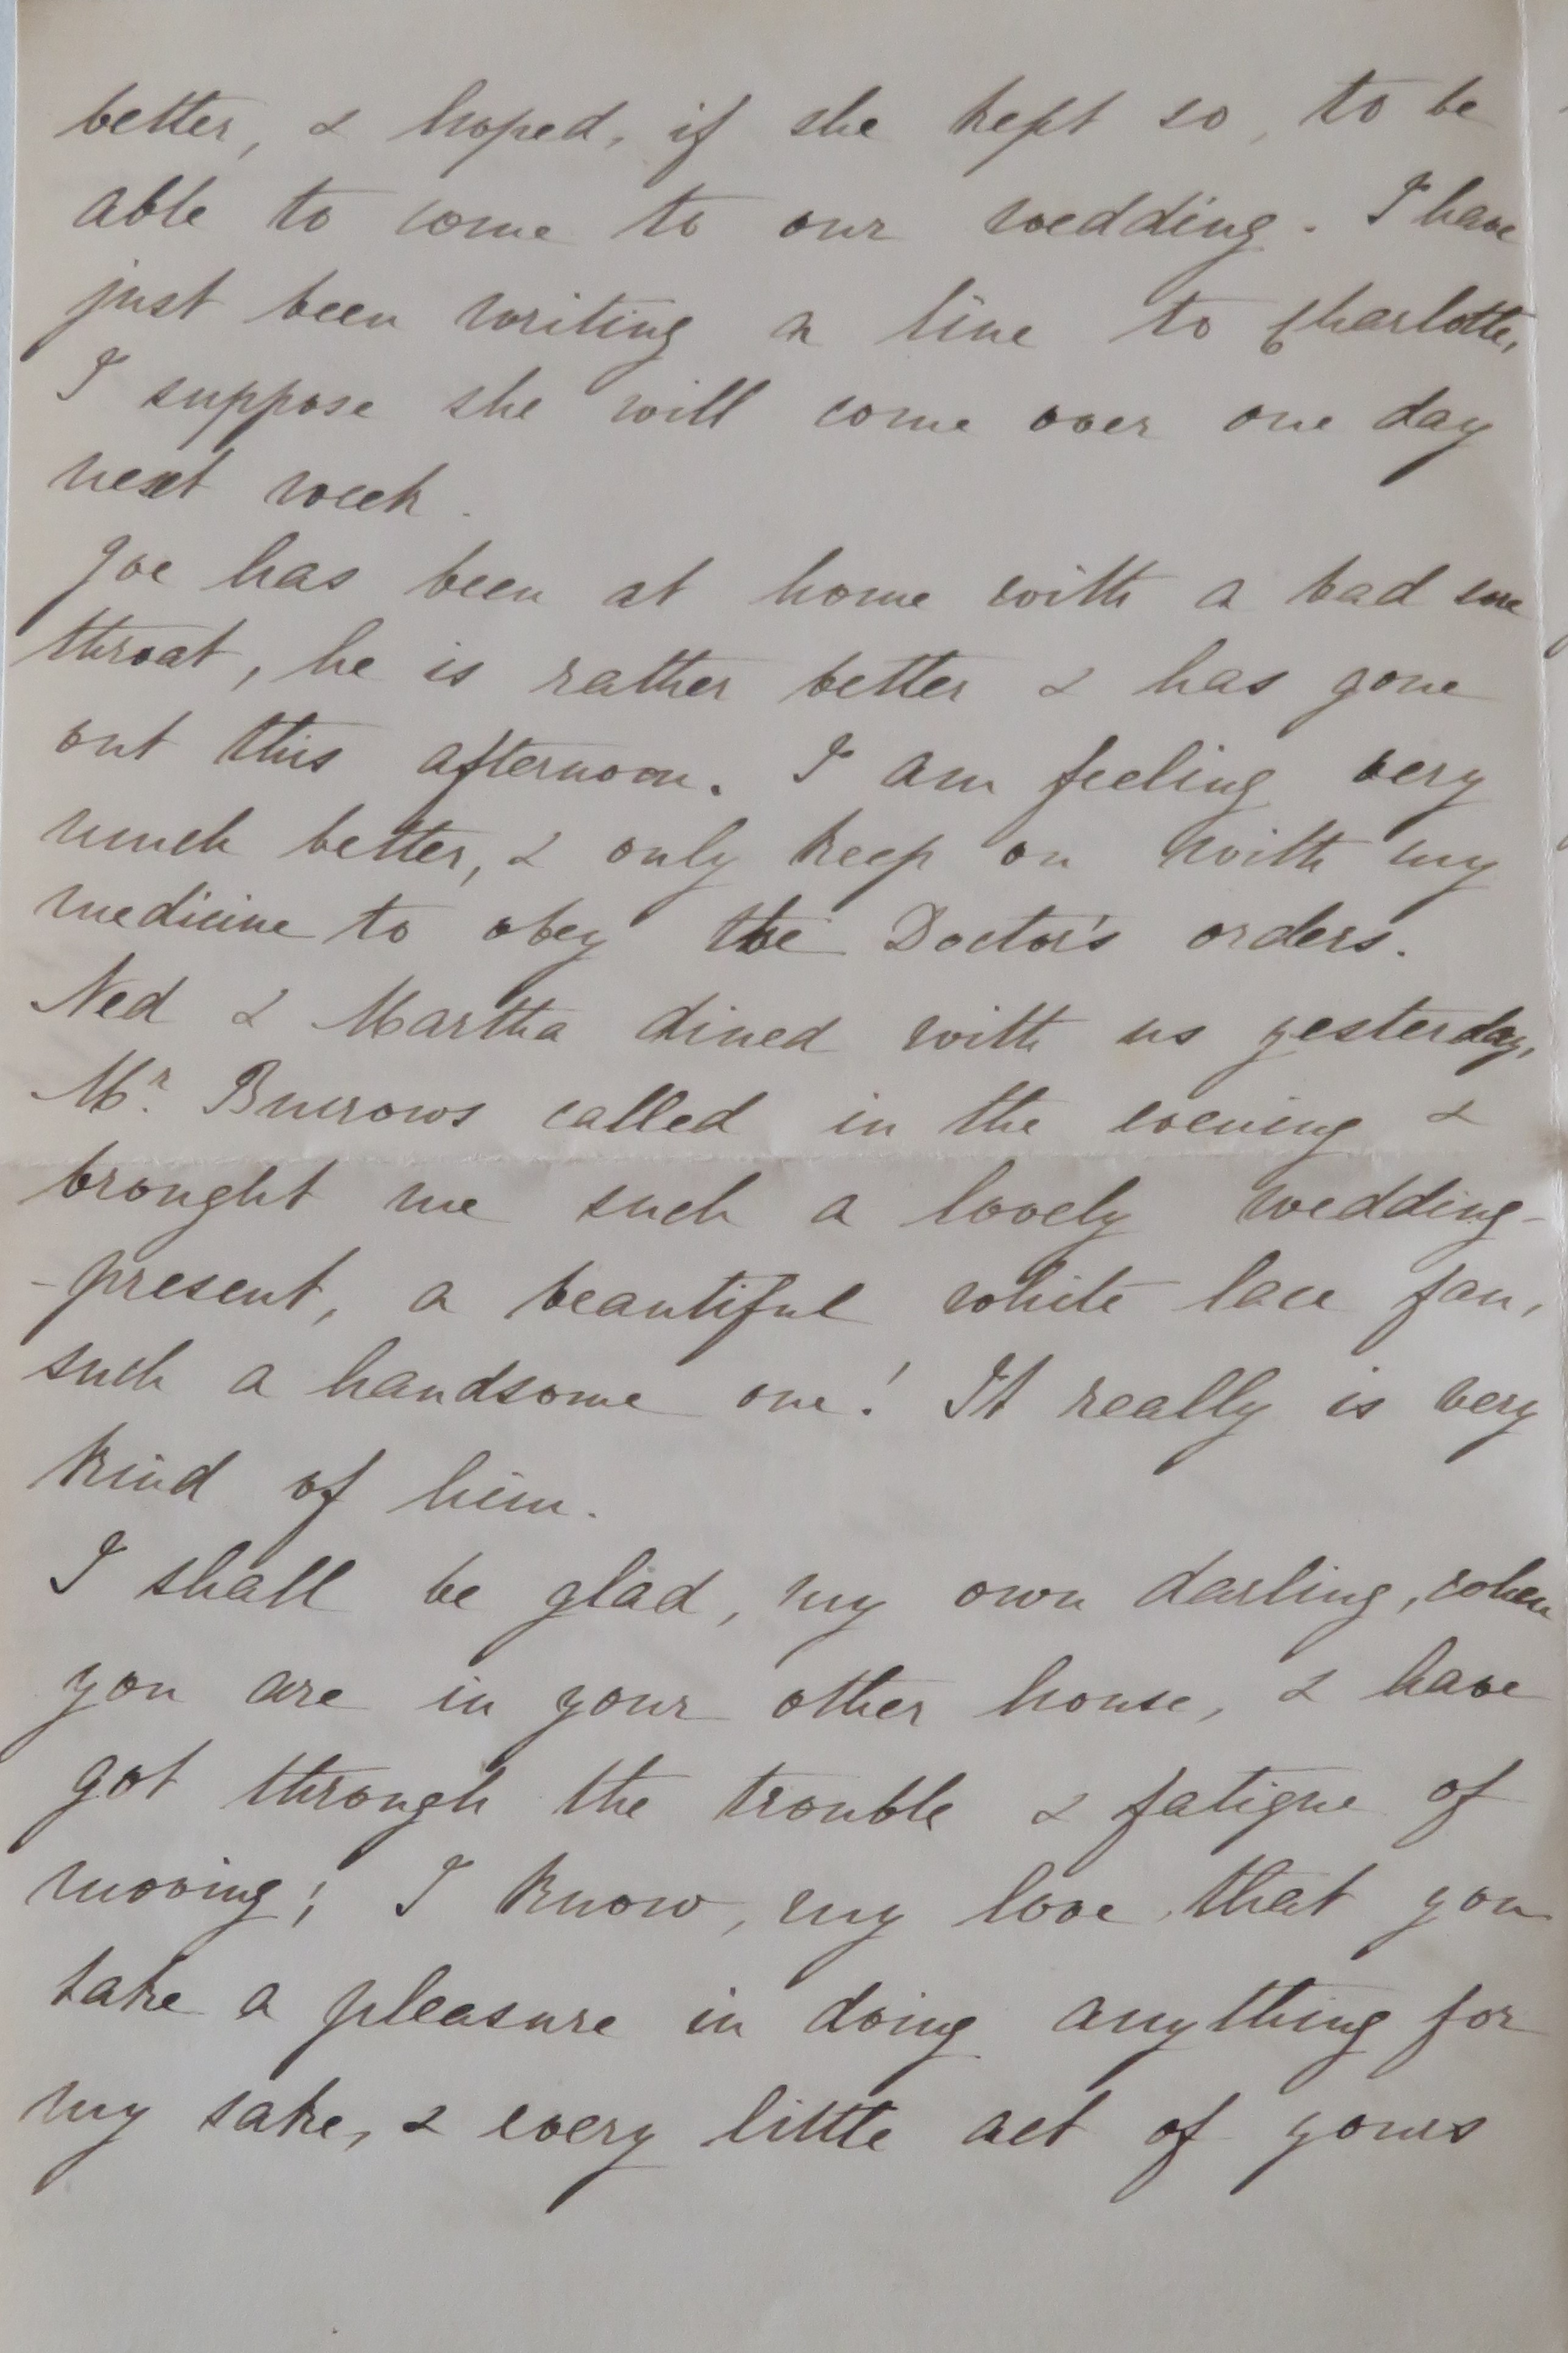 better, & hoped, if she kept so, to be
able to come to our wedding. I have
just been writing a line to Charlotte,
I suppose she will come over one day
next week.
Joe has been at home with a bad sore
throat, he is rather better & has gone
out this afternoon. I am feeling very
much better, & only keep on with my
medicine to obey the Doctor's orders.
Ned & Martha dined with us yesterday,
Mr. Burrows called in the evening &
brought me such a lovely wedding-
-present, a beautiful white lace fan,
such a handsome one! It really is very
kind of him.
I shall be glad, my own darling, when
you are in your other house, & have
got through the trouble & fatigue of
moving; I know, my love, that you
take a pleasure in doing anything for
my sake, & every little act of yours